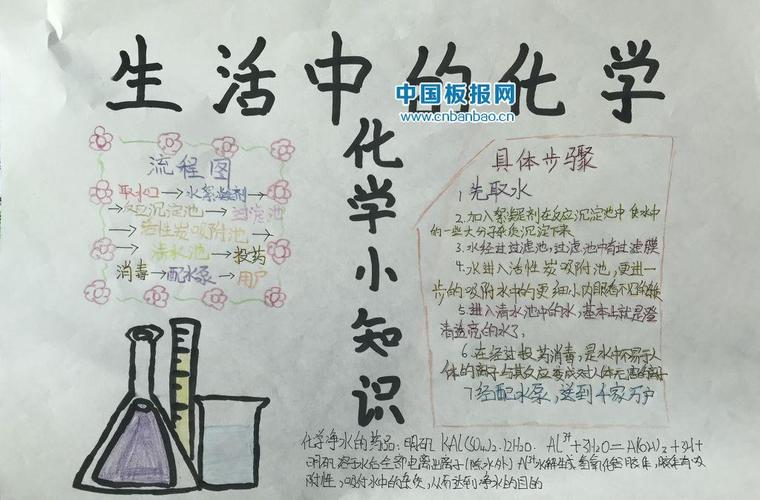 生活中的化学
中国板报网
www.cnbanbao.cn
化学小知识
流程图
取水口→水絮凝剂→
→反应沉淀池→过滤池
→活性炭吸附池→
→清水池→投药
消毒→配水泵→用户
具体步骤
1 先取水
2.加入絮凝剂在反应沉淀池中使水中
的一些大分子杂质沉淀下来
3.水经过过滤池,过滤池中有过滤膜
4.水进入活性炭吸附池,更进一
步的吸附水中的更细小肉眼看不见的
5.进入清水池中的水,基本上就是澄
清透亮的水了,
6.在经过投药消毒,是水中不易于人
体的离子与其反应变成对人体无
7经配水泵,送到千家万户
化学净水的药品:明矾 KAl(SO4)2·12H2O. Al3++3H2O=Al(OH)3+3H+
明矾溶于水后全部电离出离子(除水外)Al3+水解生成氢氧化铝胶体,胶体有吸
附性,吸附水中的杂质,从而达到净水的目的